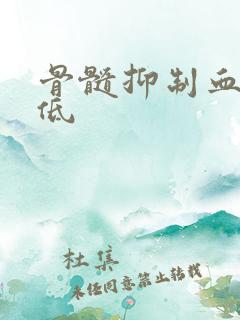 骨髓抑制血
低
杜集
未经同意禁止转载